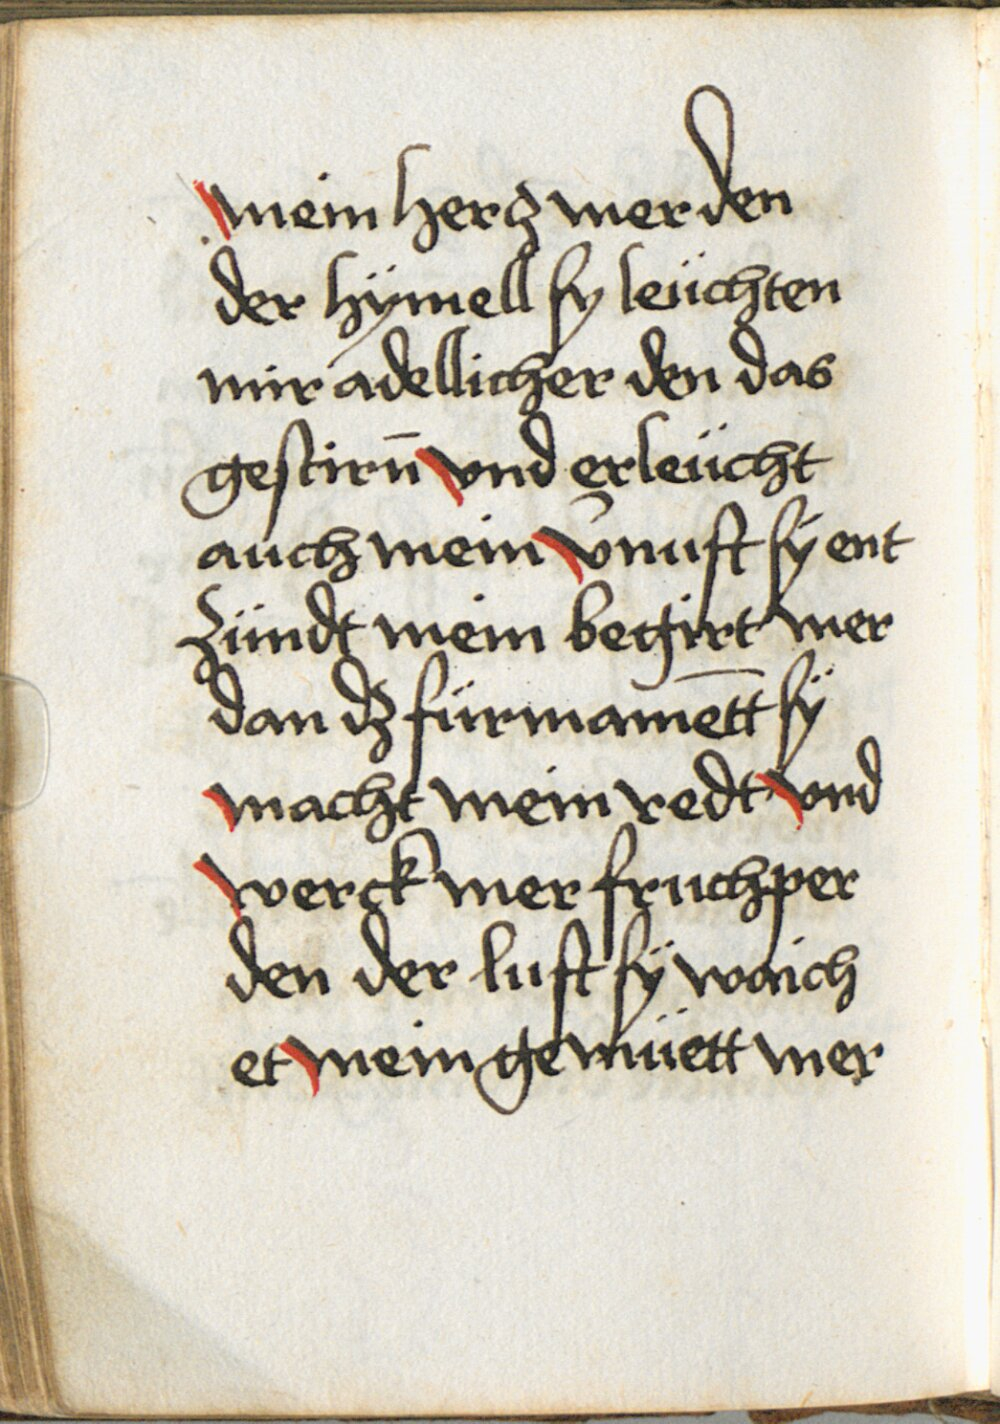 mein hercz mer den
der hÿmell sy leüchten
mir adellicher den das
gestirn̄ vnd erleücht
auch mein v̄nuft sÿ ent
zündt mein begirt mer
dan dz fürmamētt sÿ
macht mein redt vnd
werck mer fruchper
den der luft sÿ waich
et mein gemüett mer